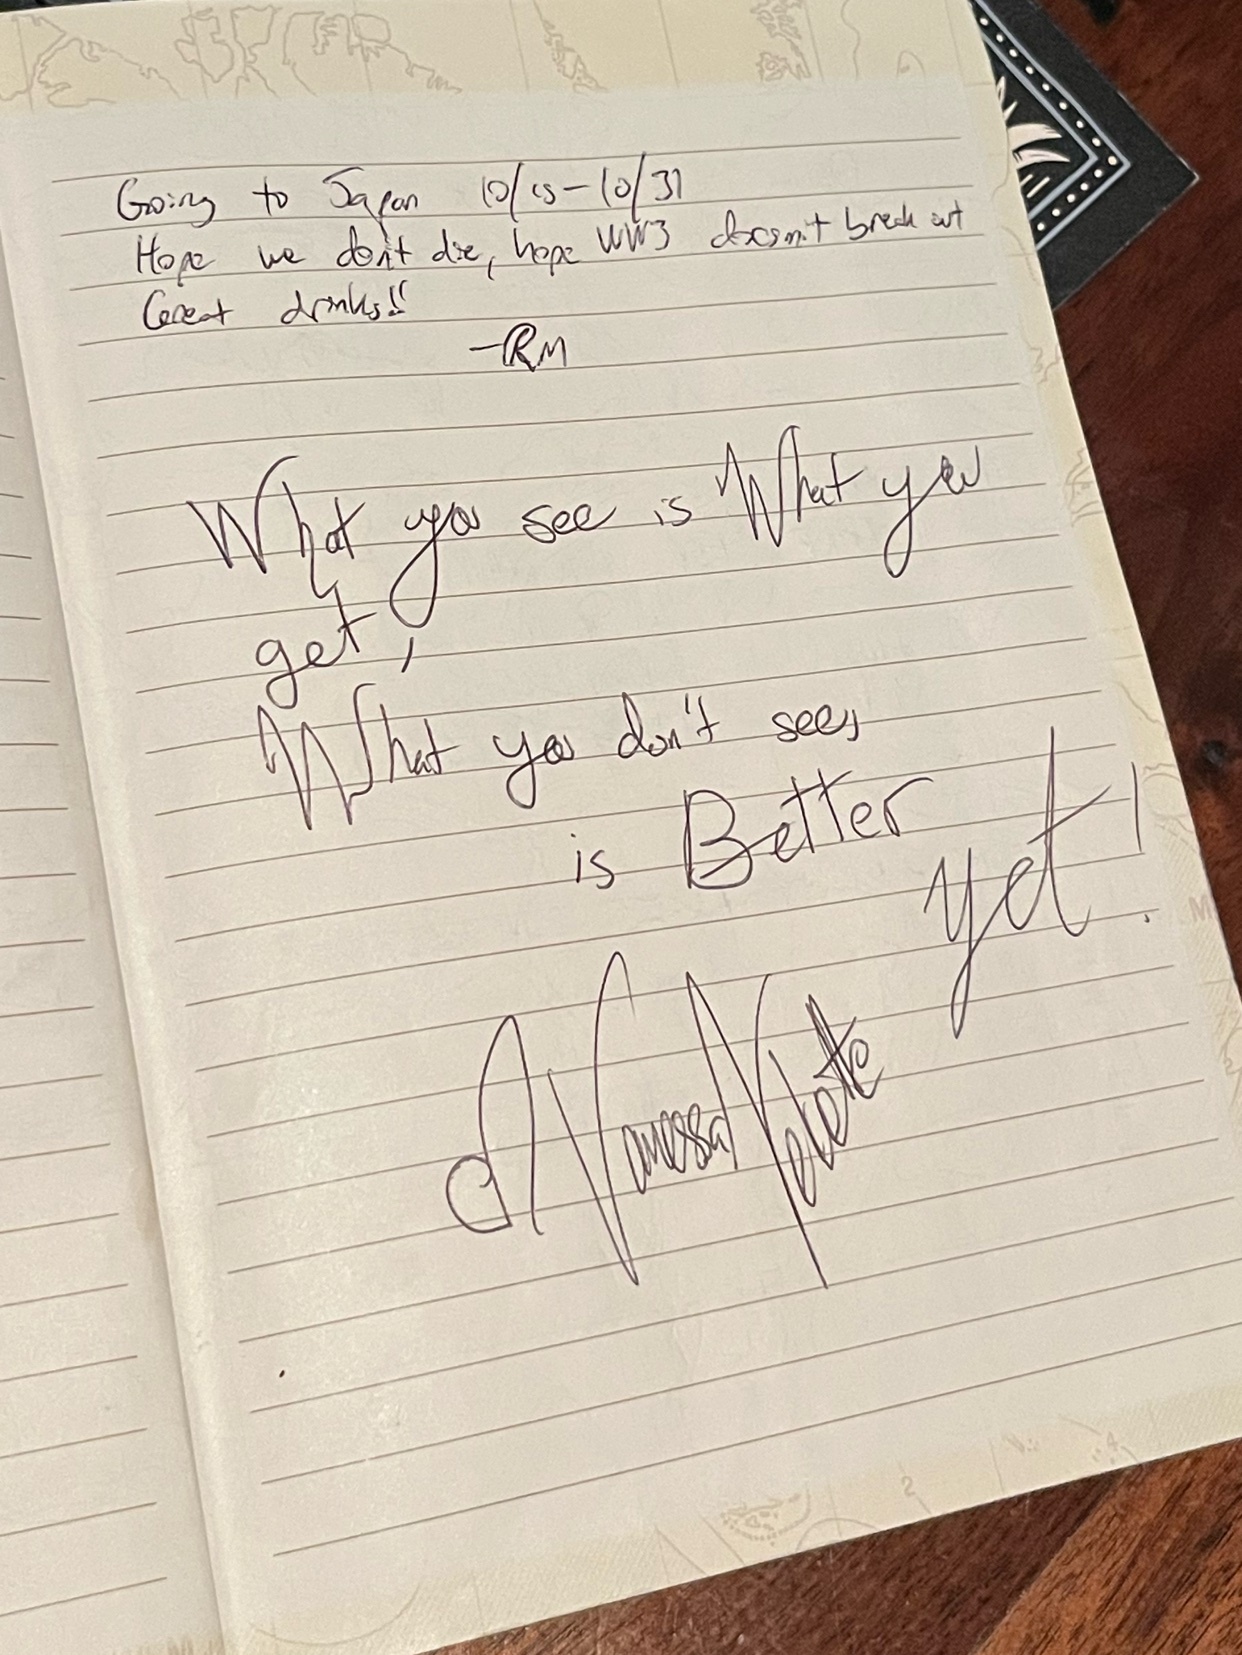 Going to Japan 10/15-10/31
Hope we don't die, hope WW3 doesn't break out
Great drinks!!
-RM
What you see is What you
get,
What you don't see,
is Better
yet!
Vanessa